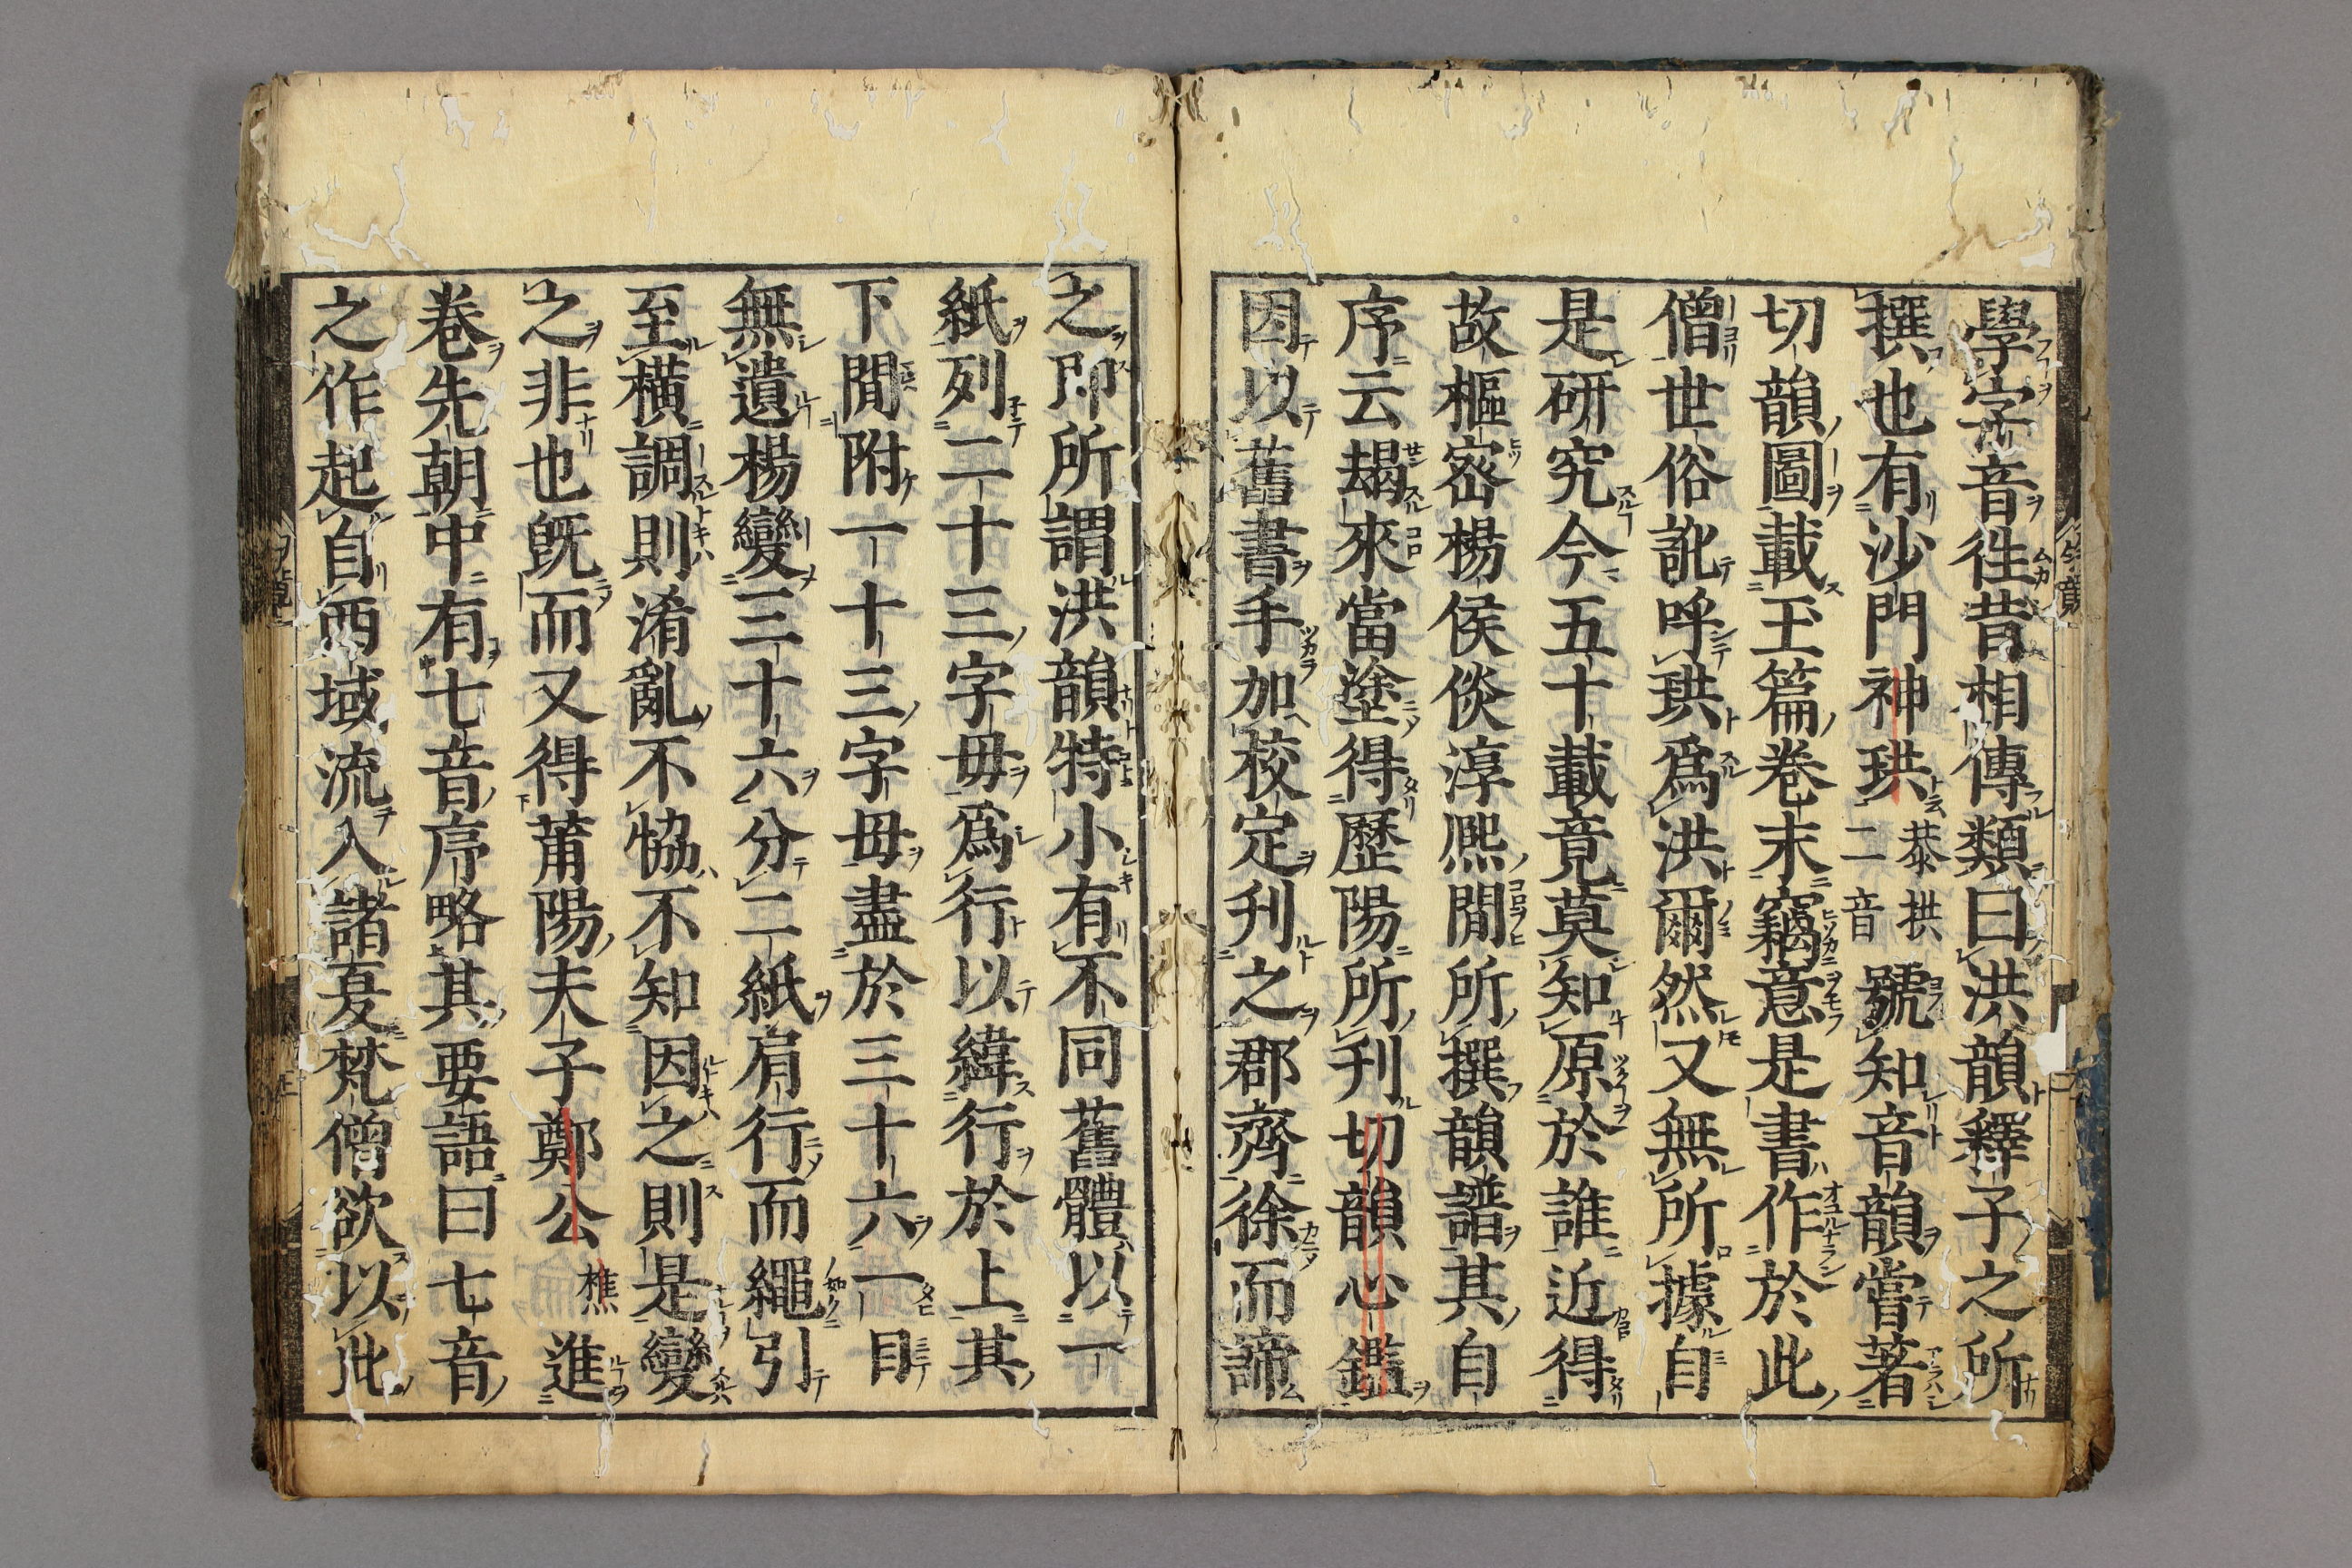 學字音徃昔相傳類曰洪韻釋子之所
撰也有沙門神珙恭拱二音號知音韻嘗著
切韻圖載玉篇卷末竊意是書作於此
僧世俗訛呼珙爲洪爾然又無所據自
是研究今五十載竟莫知原於誰近得
故樞密楊侯倓淳熈間所撰韻譜其自
序云朅來當塗得歷陽所刋切韻心鑑
因以舊書手加校定刋之郡齊徐而諦
之即所謂洪韻特小有不同舊體以一
紙列二十三字毋爲行以緯行於上其
下間附一十三字毋盡於三十六一目
無遺楊變三十六分二紙肩行而繩引
至横調則淆亂不恊不知因之則是變
之非也旣而又得莆陽夫子鄭公樵進
卷先朝中有七音序略其要語曰七音
之作起自西域流入諸夏梵僧欲以此